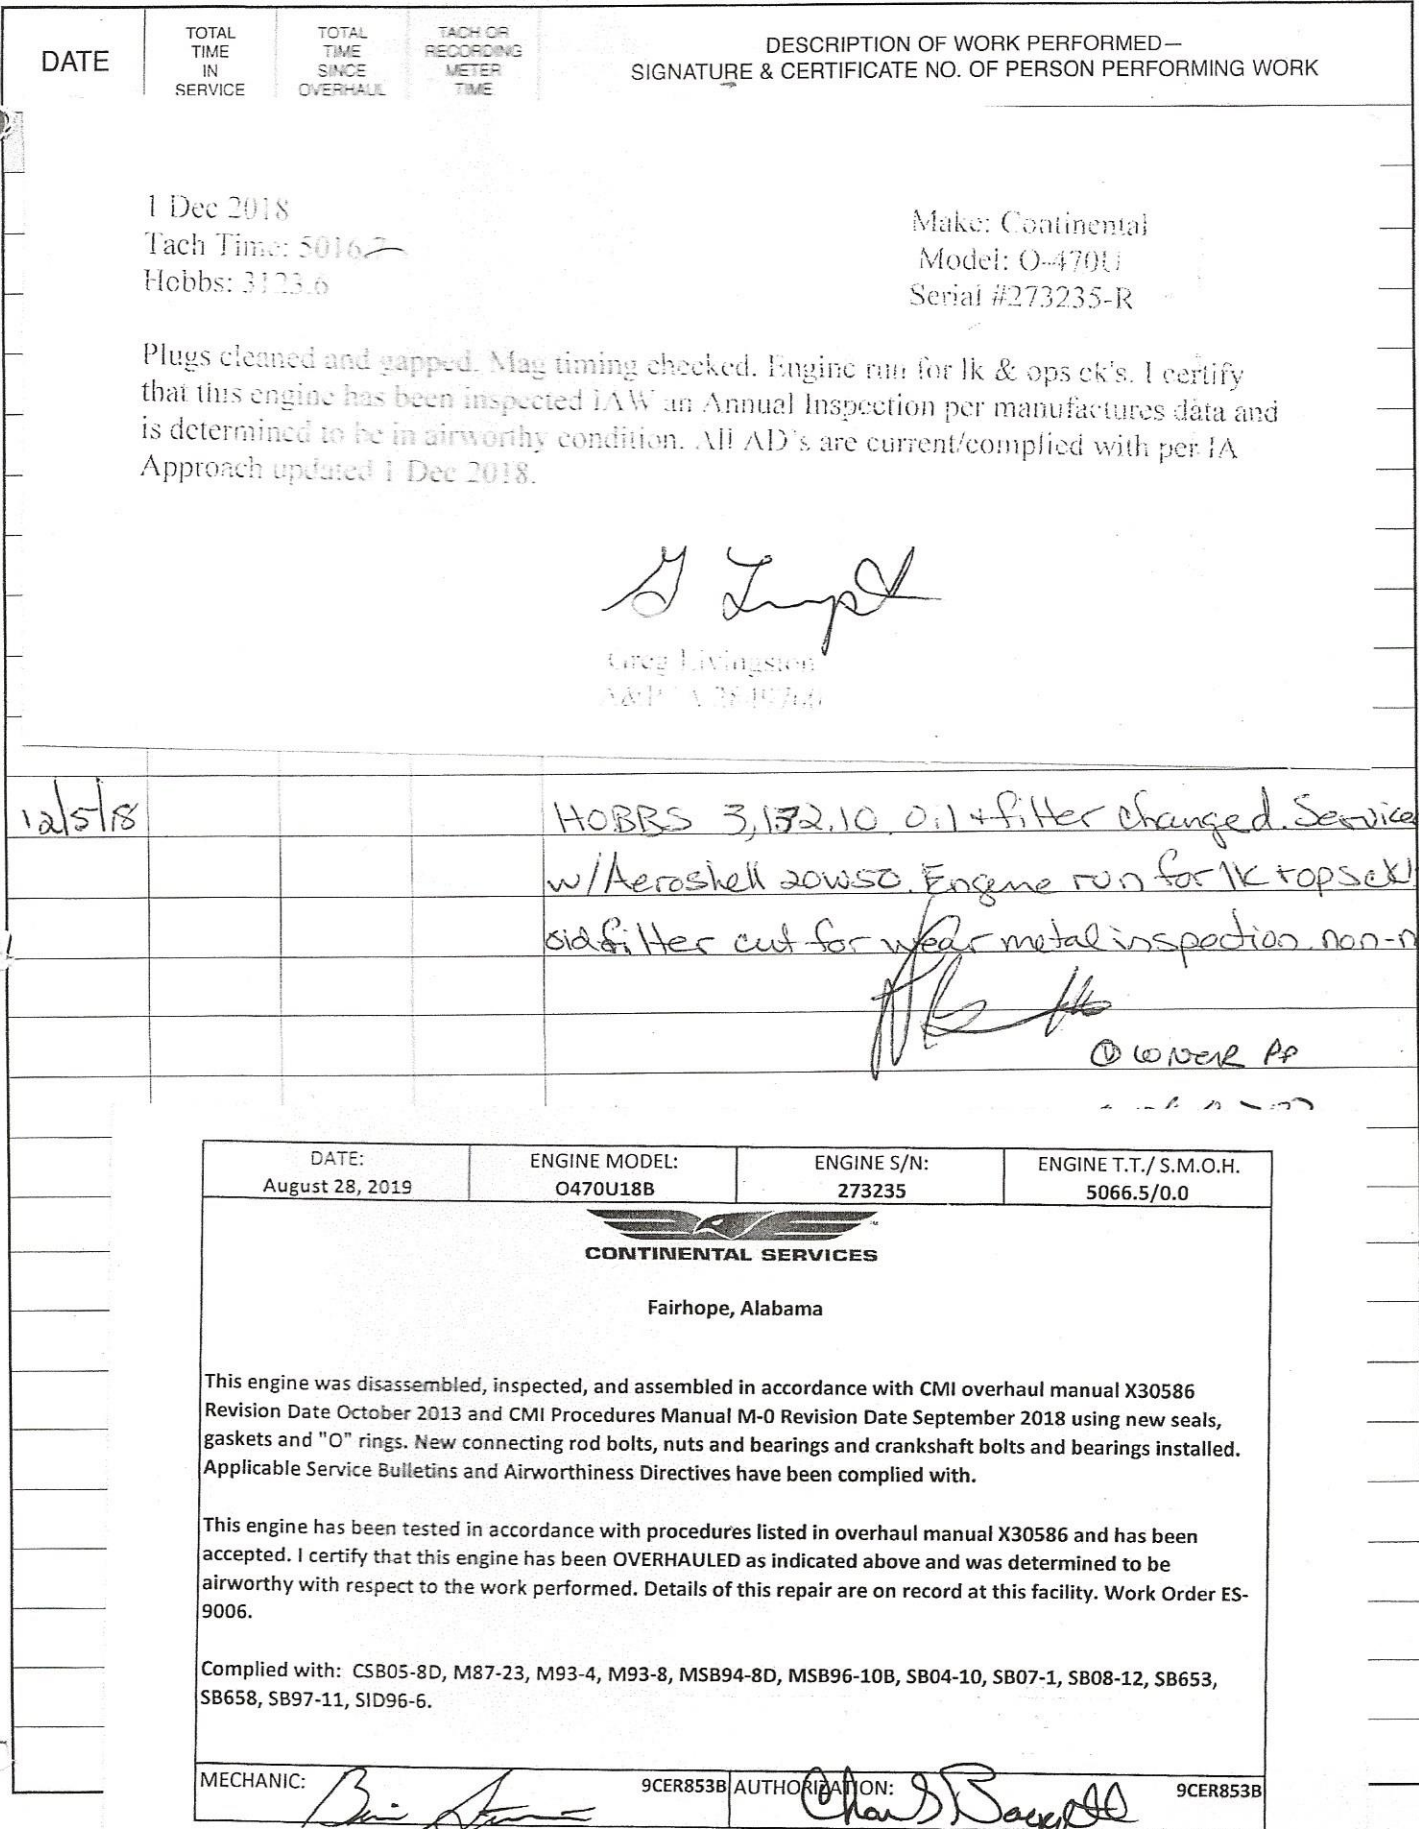 DATE
TOTAL
TIME
IN
SERVICE
TOTAL
TIME
SINCE
OVERHAUL
TACH OR
RECORDING
METER
TIME
DESCRIPTION OF WORK PERFORMED—
SIGNATURE & CERTIFICATE NO. OF PERSON PERFORMING WORK
1 Dec 2018
Tach Time: 5016.7
Hobbs: 3123.6
Make: Continental
Model: O-470U
Serial #273235-R
Plugs cleaned and gapped. Mag timing checked. Engine run for lk & ops ck's. I certify
that this engine has been inspected IAW an Annual Inspection per manufactures data and
is determined to be in airworthy condition. All AD's are current/complied with per IA
Approach updated 1 Dec 2018.
Greg Livingston
12/5/18
HOBBS 3,132.10. Oil + filter changed. Service
w/Aeroshell 20W50. Engine run for lk + ops ck
old filter cut for wear metal inspection. non-n
OWNER PP
DATE:
August 28, 2019
ENGINE MODEL:
O470U18B
ENGINE S/N:
273235
ENGINE T.T./ S.M.O.H.
5066.5/0.0
CONTINENTAL SERVICES
Fairhope, Alabama
This engine was disassembled, inspected, and assembled in accordance with CMI overhaul manual X30586
Revision Date October 2013 and CMI Procedures Manual M-0 Revision Date September 2018 using new seals,
gaskets and "O" rings. New connecting rod bolts, nuts and bearings and crankshaft bolts and bearings installed.
Applicable Service Bulletins and Airworthiness Directives have been complied with.
This engine has been tested in accordance with procedures listed in overhaul manual X30586 and has been
accepted. I certify that this engine has been OVERHAULED as indicated above and was determined to be
airworthy with respect to the work performed. Details of this repair are on record at this facility. Work Order ES-
9006.
Complied with: CSB05-8D, M87-23, M93-4, M93-8, MSB94-8D, MSB96-10B, SB04-10, SB07-1, SB08-12, SB653,
SB658, SB97-11, SID96-6.
MECHANIC:
9CER853B
AUTHORIZATION:
9CER853B